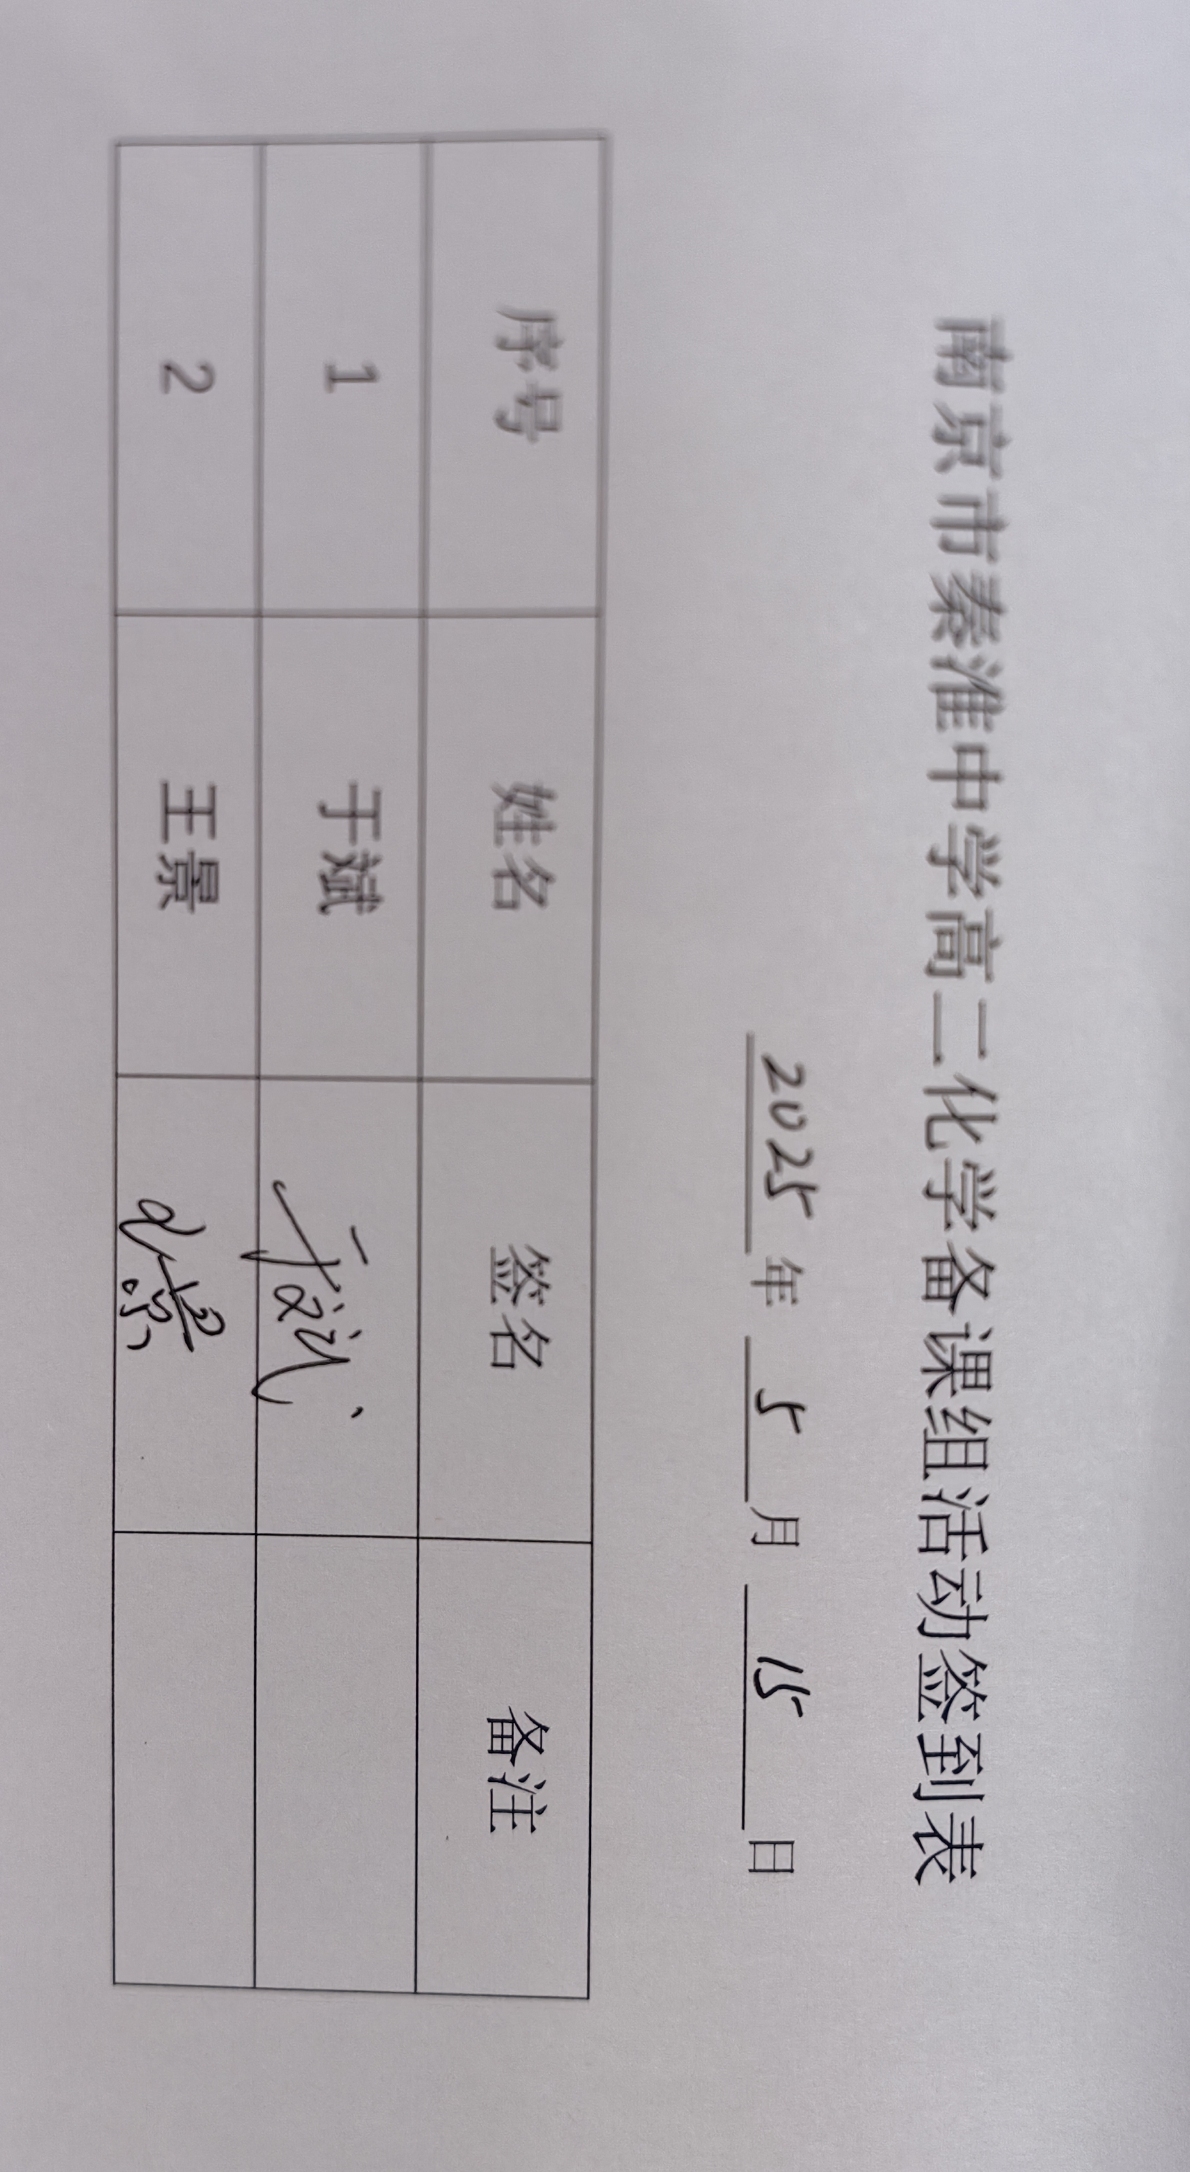 南京市秦淮中学高二化学备课组活动签到表
2025 年 5 月 15 日
序号 姓名 签名 备注
1 于斌 于斌
2 王景 王景